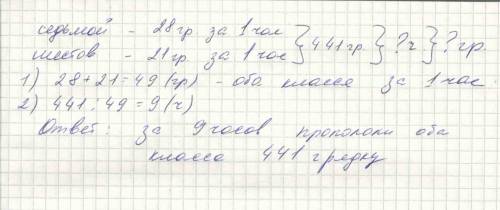 седьмой - 28 гр за 1 час } 441 гр. } ? ч } ? гр.
шестов - 21 гр за 1 час
1) 28 + 21 = 49 (гр) - оба класса за 1 час
2) 441 : 49 = 9 (ч)
Ответ: за 9 часов пропололи оба
класса 441 грядку